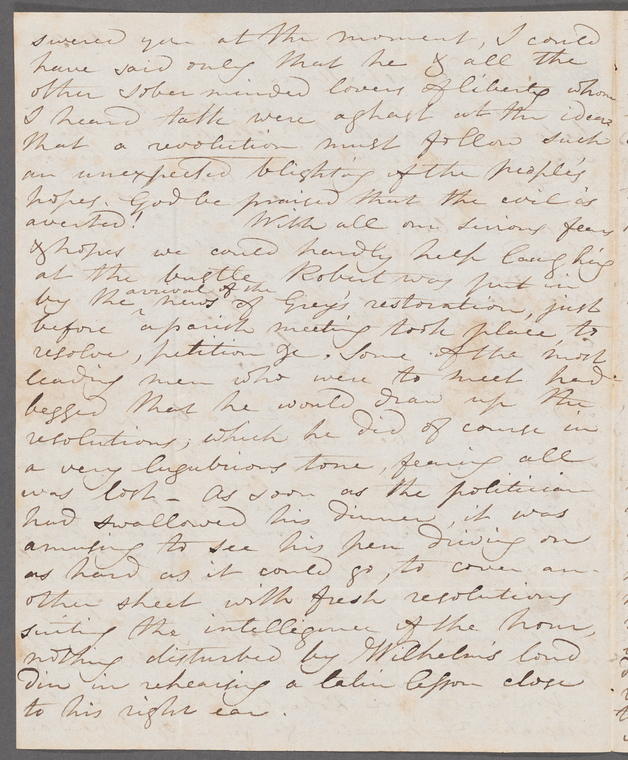 swered you at the moment, I could
have said only that he & all the
other sober minded lovers of liberty whom
I heard talk were aghast at the idea
that a revolution must follow such
an unexpected blighting of the people's
hopes. God be praised that the evil is
averted! With all our serious fears
& hopes we could hardly help laughing
at the bustle Robert was put in
by the arrival of the news of Grey's restoration, just
before a parish meeting took place, to
resolve, petition &c. Some of the most
leading men who were to meet had
begged that he would draw up the
resolutions; which he did of course in
a very lugubrious tone, fearing all
was lost - As soon as the politician
had swallowed his dinner, it was
amusing to see his pen driving on
as hard as it could go, to cover an-
other sheet with fresh resolutions
suiting the intelligence of the hour,
nothing disturbed by Wilhelm's loud
din in rehearsing a latin lesson close
to his right ear.